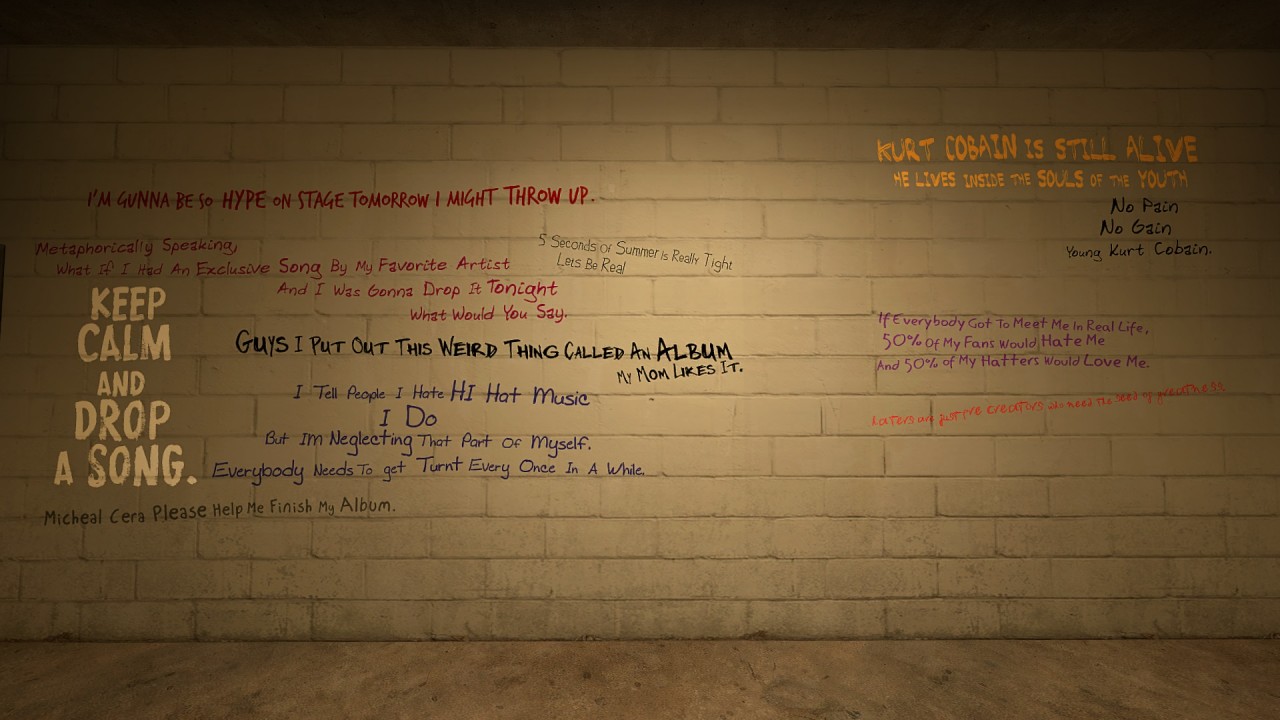 I'M GUNNA BE SO HYPE ON STAGE TOMORROW I MIGHT THROW UP.
Metaphorically Speaking,
What If I Had An Exclusive Song By My Favorite Artist
And I Was Gonna Drop It Tonight
What Would You Say.
5 Seconds Of Summer Is Really Tight
Lets Be Real
KEEP
CALM
AND
DROP
A SONG.
GUYS I PUT OUT THIS WEIRD THING CALLED AN ALBUM
MY MOM LIKES IT.
I Tell People I Hate HI Hat Music
I Do
But Im Neglecting That Part Of Myself.
Everybody Needs To get Turnt Every Once In A While.
Micheal Cera Please Help Me Finish My Album.
KURT COBAIN IS STILL ALIVE
HE LIVES INSIDE THE SOULS OF THE YOUTH
No Pain
No Gain
Young Kurt Cobain.
If Everybody Got To Meet Me In Real Life,
50% Of My Fans Would Hate Me
And 50% of My Hatters Would Love Me.
haters are just pre creators who need the seed of greatness